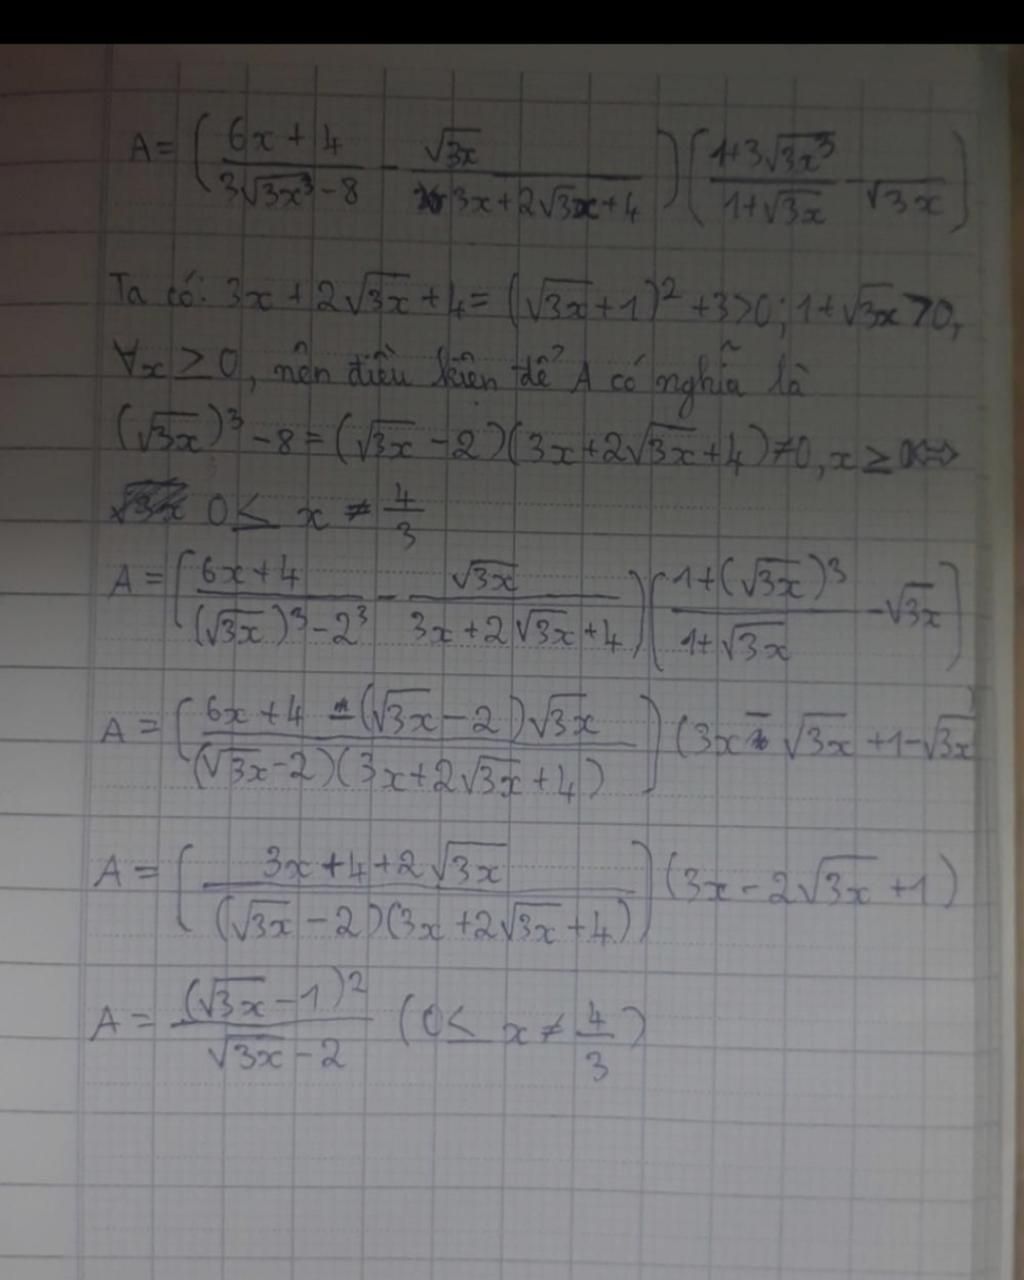 A = (6x + 4 / 3√3x³ - 8 - √3x / 3x + 2√3x + 4) (1+3√3x³ / 1+√3x - √3x)
Ta có: 3x + 2√3x + 4 = (√3x + 1)² + 3 > 0; 1 + √3x > 0,
∀x ≥ 0, nên điều kiện để A có nghĩa là
(√3x)³ - 8 = (√3x - 2)(3x + 2√3x + 4) ≠ 0, x ≥ 0 ⇔
0 ≤ x ≠ 4/3
A = (6x + 4 / (√3x)³ - 2³ - √3x / 3x + 2√3x + 4) (1 + (√3x)³ / 1 + √3x - √3x)
A = (6x + 4 - (√3x - 2)√3x / (√3x - 2)(3x + 2√3x + 4)) (3x - √3x + 1 - √3x
A = (3x + 4 + 2√3x / (√3x - 2)(3x + 2√3x + 4)) (3x - 2√3x + 1)
A = (√3x - 1)² / √3x - 2 (0 ≤ x ≠ 4/3)